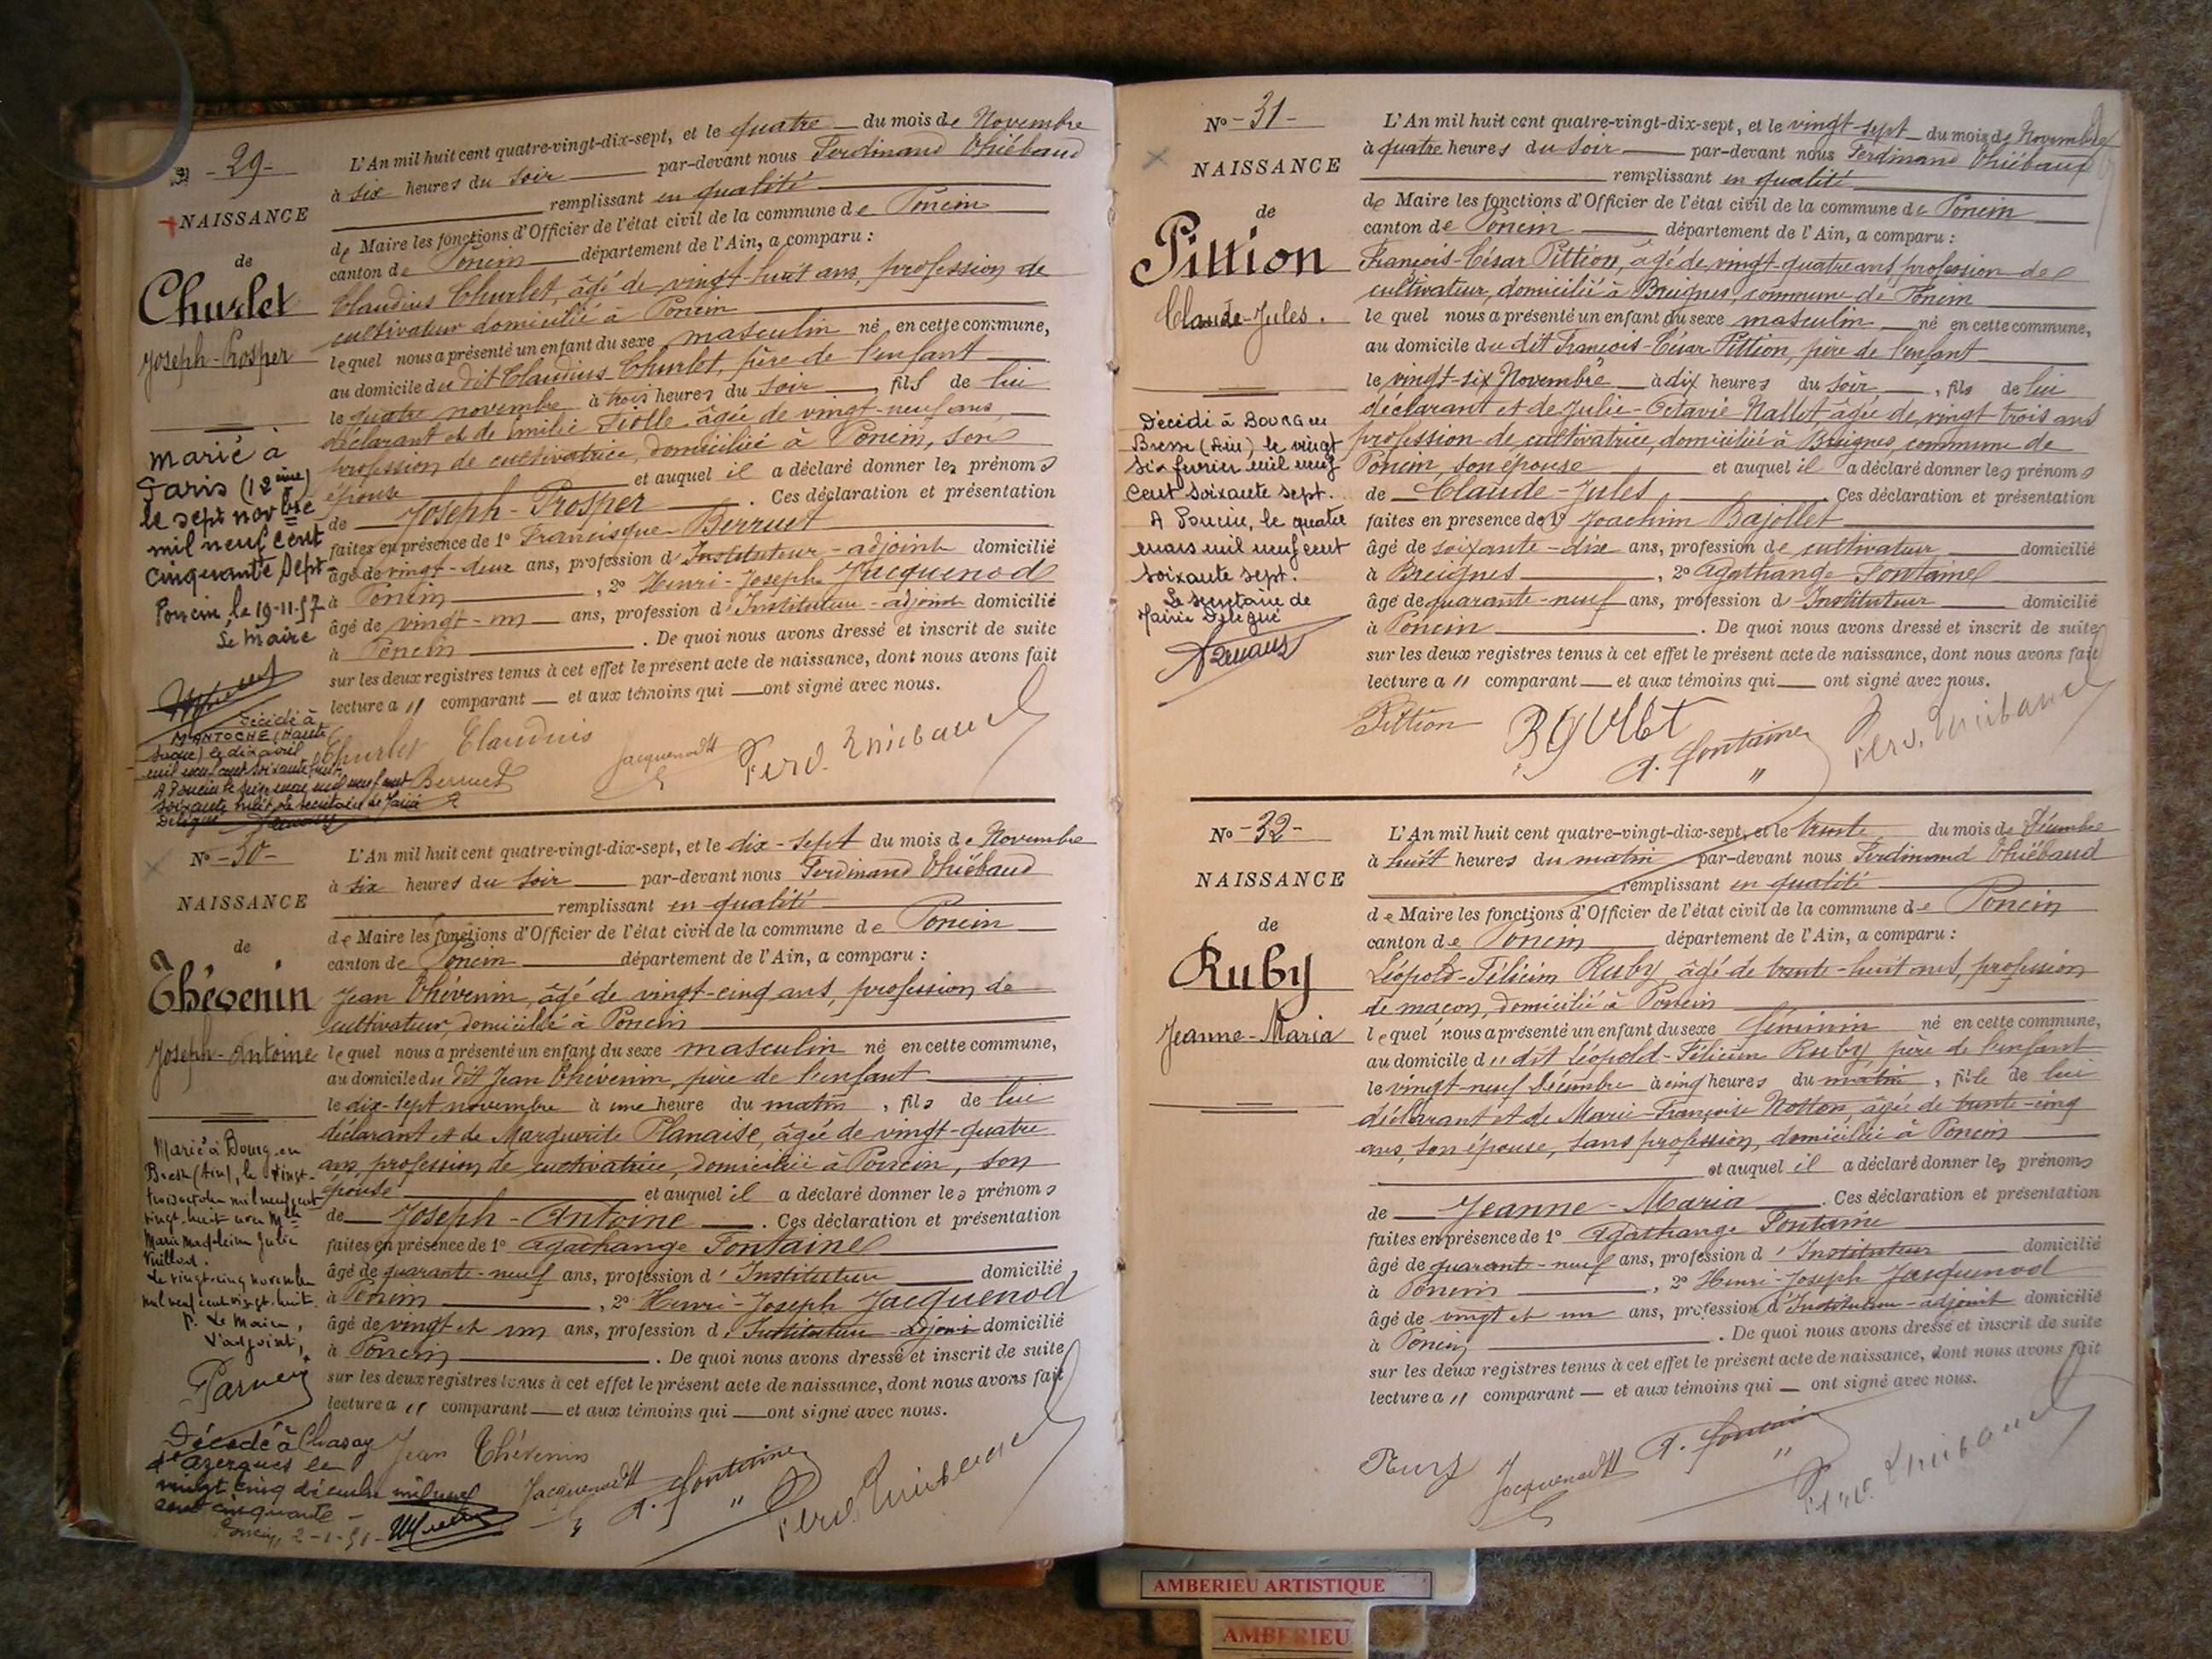 N° - 29 -
NAISSANCE
de
Churlet
Joseph-Prosper
L'An mil huit cent quatre-vingt-dix-sept, et le quatre du mois de Novembre
à six heures du soir par-devant nous Ferdinand Thiébaud
remplissant en qualité
de Maire les fonctions d'Officier de l'état civil de la commune de Poncin
canton de Poncin département de l'Ain, a comparu :
Claudius Churlet, âgé de vingt-huit ans, profession de
cultivateur domicilié à Poncin
lequel nous a présenté un enfant du sexe masculin né en cette commune,
au domicile du dit Claudius Churlet, père de l'enfant
le quatre novembre à trois heures du soir, fils de lui
déclarant et de Emilie Fiolle âgée de vingt-neuf ans,
profession de cultivatrice, domiciliée à Poncin, son
épouse et auquel il a déclaré donner les prénoms
de Joseph-Prosper. Ces déclaration et présentation
faites en présence de 1° Francisque Berruet
âgé de vingt-deux ans, profession d'Instituteur-adjoint domicilié
à Poncin, 2° Henri-Joseph Jacquenod
âgé de vingt-un ans, profession d'Instituteur-adjoint domicilié
à Poncin. De quoi nous avons dressé et inscrit de suite
sur les deux registres tenus à cet effet le présent acte de naissance, dont nous avons fait
lecture a " comparant et aux témoins qui ont signé avec nous.
Churlet Claudius
Jacquenod H
Ferd. Thiébaud
Berruet
marié à
Paris (12ème)
le sept novbre
mil neuf cent
cinquante sept
Poncin le 19-11-57
Le Maire
Décédé à
MANTOCHE (Haute
Saône) le dix avril
mil neuf cent soixante huit
soixante huit le secrétaire de Mairie
Délégué
N° - 30 -
NAISSANCE
de
Thévenin
Joseph-Antoine
L'An mil huit cent quatre-vingt-dix-sept, et le dix-sept du mois de Novembre
à six heures du soir par-devant nous Ferdinand Thiébaud
remplissant en qualité
de Maire les fonctions d'Officier de l'état civil de la commune de Poncin
canton de Poncin département de l'Ain, a comparu :
Jean Thévenin, âgé de vingt-cinq ans, profession de
cultivateur, domicilié à Poncin
lequel nous a présenté un enfant du sexe masculin né en cette commune,
au domicile du dit Jean Thévenin, père de l'enfant
le dix-sept novembre à une heure du matin, fils de lui
déclarant et de Marguerite Planaise, âgée de vingt-quatre
ans, profession de cultivatrice, domiciliée à Poncin, son
épouse et auquel il a déclaré donner les prénoms
de Joseph-Antoine. Ces déclaration et présentation
faites en présence de 1° Agathange Fontaine
âgé de quarante-neuf ans, profession d'Instituteur domicilié
à Poncin, 2° Henri-Joseph Jacquenod
âgé de vingt et un ans, profession d'Instituteur-adjoint domicilié
à Poncin. De quoi nous avons dressé et inscrit de suite
sur les deux registres tenus à cet effet le présent acte de naissance, dont nous avons fait
lecture a " comparant et aux témoins qui ont signé avec nous.
Jean Thévenin
Jacquenod H
A. Fontaine
Ferd. Thiébaud
Marié à Bourg en
Bresse (Ain), le vingt-
trois octobre mil neuf cent
vingt huit avec Mlle
Marie Madeleine Julie
Vuillod.
Le vingt-cinq novembre
mil neuf cent vingt-huit.
P. Le Maire,
L'adjoint,
Décédé à Chasay
d'Azergues le
vingt cinq décembre mil neuf
cent cinquante -
Poncin, 2-1-51-
N° - 31 -
NAISSANCE
de
Pittion
Claude-Jules.
L'An mil huit cent quatre-vingt-dix-sept, et le vingt-sept du mois de Novembre
à quatre heures du soir par-devant nous Ferdinand Thiébaud
remplissant en qualité
de Maire les fonctions d'Officier de l'état civil de la commune de Poncin
canton de Poncin département de l'Ain, a comparu :
François-César Pittion, âgé de vingt-quatre ans, profession de
cultivateur, domicilié à Breignes, commune de Poncin
lequel nous a présenté un enfant du sexe masculin né en cette commune,
au domicile du dit François-César Pittion, père de l'enfant
le vingt-six Novembre à dix heures du soir, fils de lui
déclarant et de Julie-Octavie Nallet, âgée de vingt trois ans
profession de cultivatrice, domiciliée à Breignes, commune de
Poncin, son épouse et auquel il a déclaré donner les prénoms
de Claude-Jules. Ces déclaration et présentation
faites en presence de 1° Joachim Bajollet
âgé de soixante-dix ans, profession de cultivateur domicilié
à Breignes, 2° Agathange Fontaine
âgé de quarante-neuf ans, profession d'Instituteur domicilié
à Poncin. De quoi nous avons dressé et inscrit de suite
sur les deux registres tenus à cet effet le présent acte de naissance, dont nous avons fait
lecture a " comparant et aux témoins qui ont signé avec nous.
Pittion
A. Fontaine
Ferd. Thiébaud
Décédé à BOURG en
Bresse (Ain) le vingt
six fevrier mil neuf
cent soixante sept.
A Poncin, le quatre
mars mil neuf cent
soixante sept.
Le secrétaire de
Mairie Délégué
N° - 32 -
NAISSANCE
de
Ruby
Jeanne-Maria
L'An mil huit cent quatre-vingt-dix-sept, et le trente du mois de Décembre
à huit heures du matin par-devant nous Ferdinand Thiébaud
remplissant en qualité
de Maire les fonctions d'Officier de l'état civil de la commune de Poncin
canton de Poncin département de l'Ain, a comparu :
Léopold-Félicien Ruby, âgé de trente-huit ans, profession
de maçon, domicilié à Poncin
lequel nous a présenté un enfant du sexe féminin né en cette commune,
au domicile du dit Léopold-Félicien Ruby, père de l'enfant
le vingt-neuf Décembre à cinq heures du matin, fille de lui
déclarant et de Marie-Françoise Notton, âgée de trente-cinq
ans, son épouse, sans profession, domiciliée à Poncin
et auquel il a déclaré donner les prénoms
de Jeanne-Maria. Ces déclaration et présentation
faites en présence de 1° Agathange Fontaine
âgé de quarante-neuf ans, profession d'Instituteur domicilié
à Poncin, 2° Henri-Joseph Jacquenod
âgé de vingt et un ans, profession d'Instituteur-adjoint domicilié
à Poncin. De quoi nous avons dressé et inscrit de suite
sur les deux registres tenus à cet effet le présent acte de naissance, dont nous avons fait
lecture a " comparant et aux témoins qui ont signé avec nous.
Ruby
Jacquenod H
A. Fontaine
Ferd. Thiébaud
AMBERIEU ARTISTIQUE
AMBERIEU